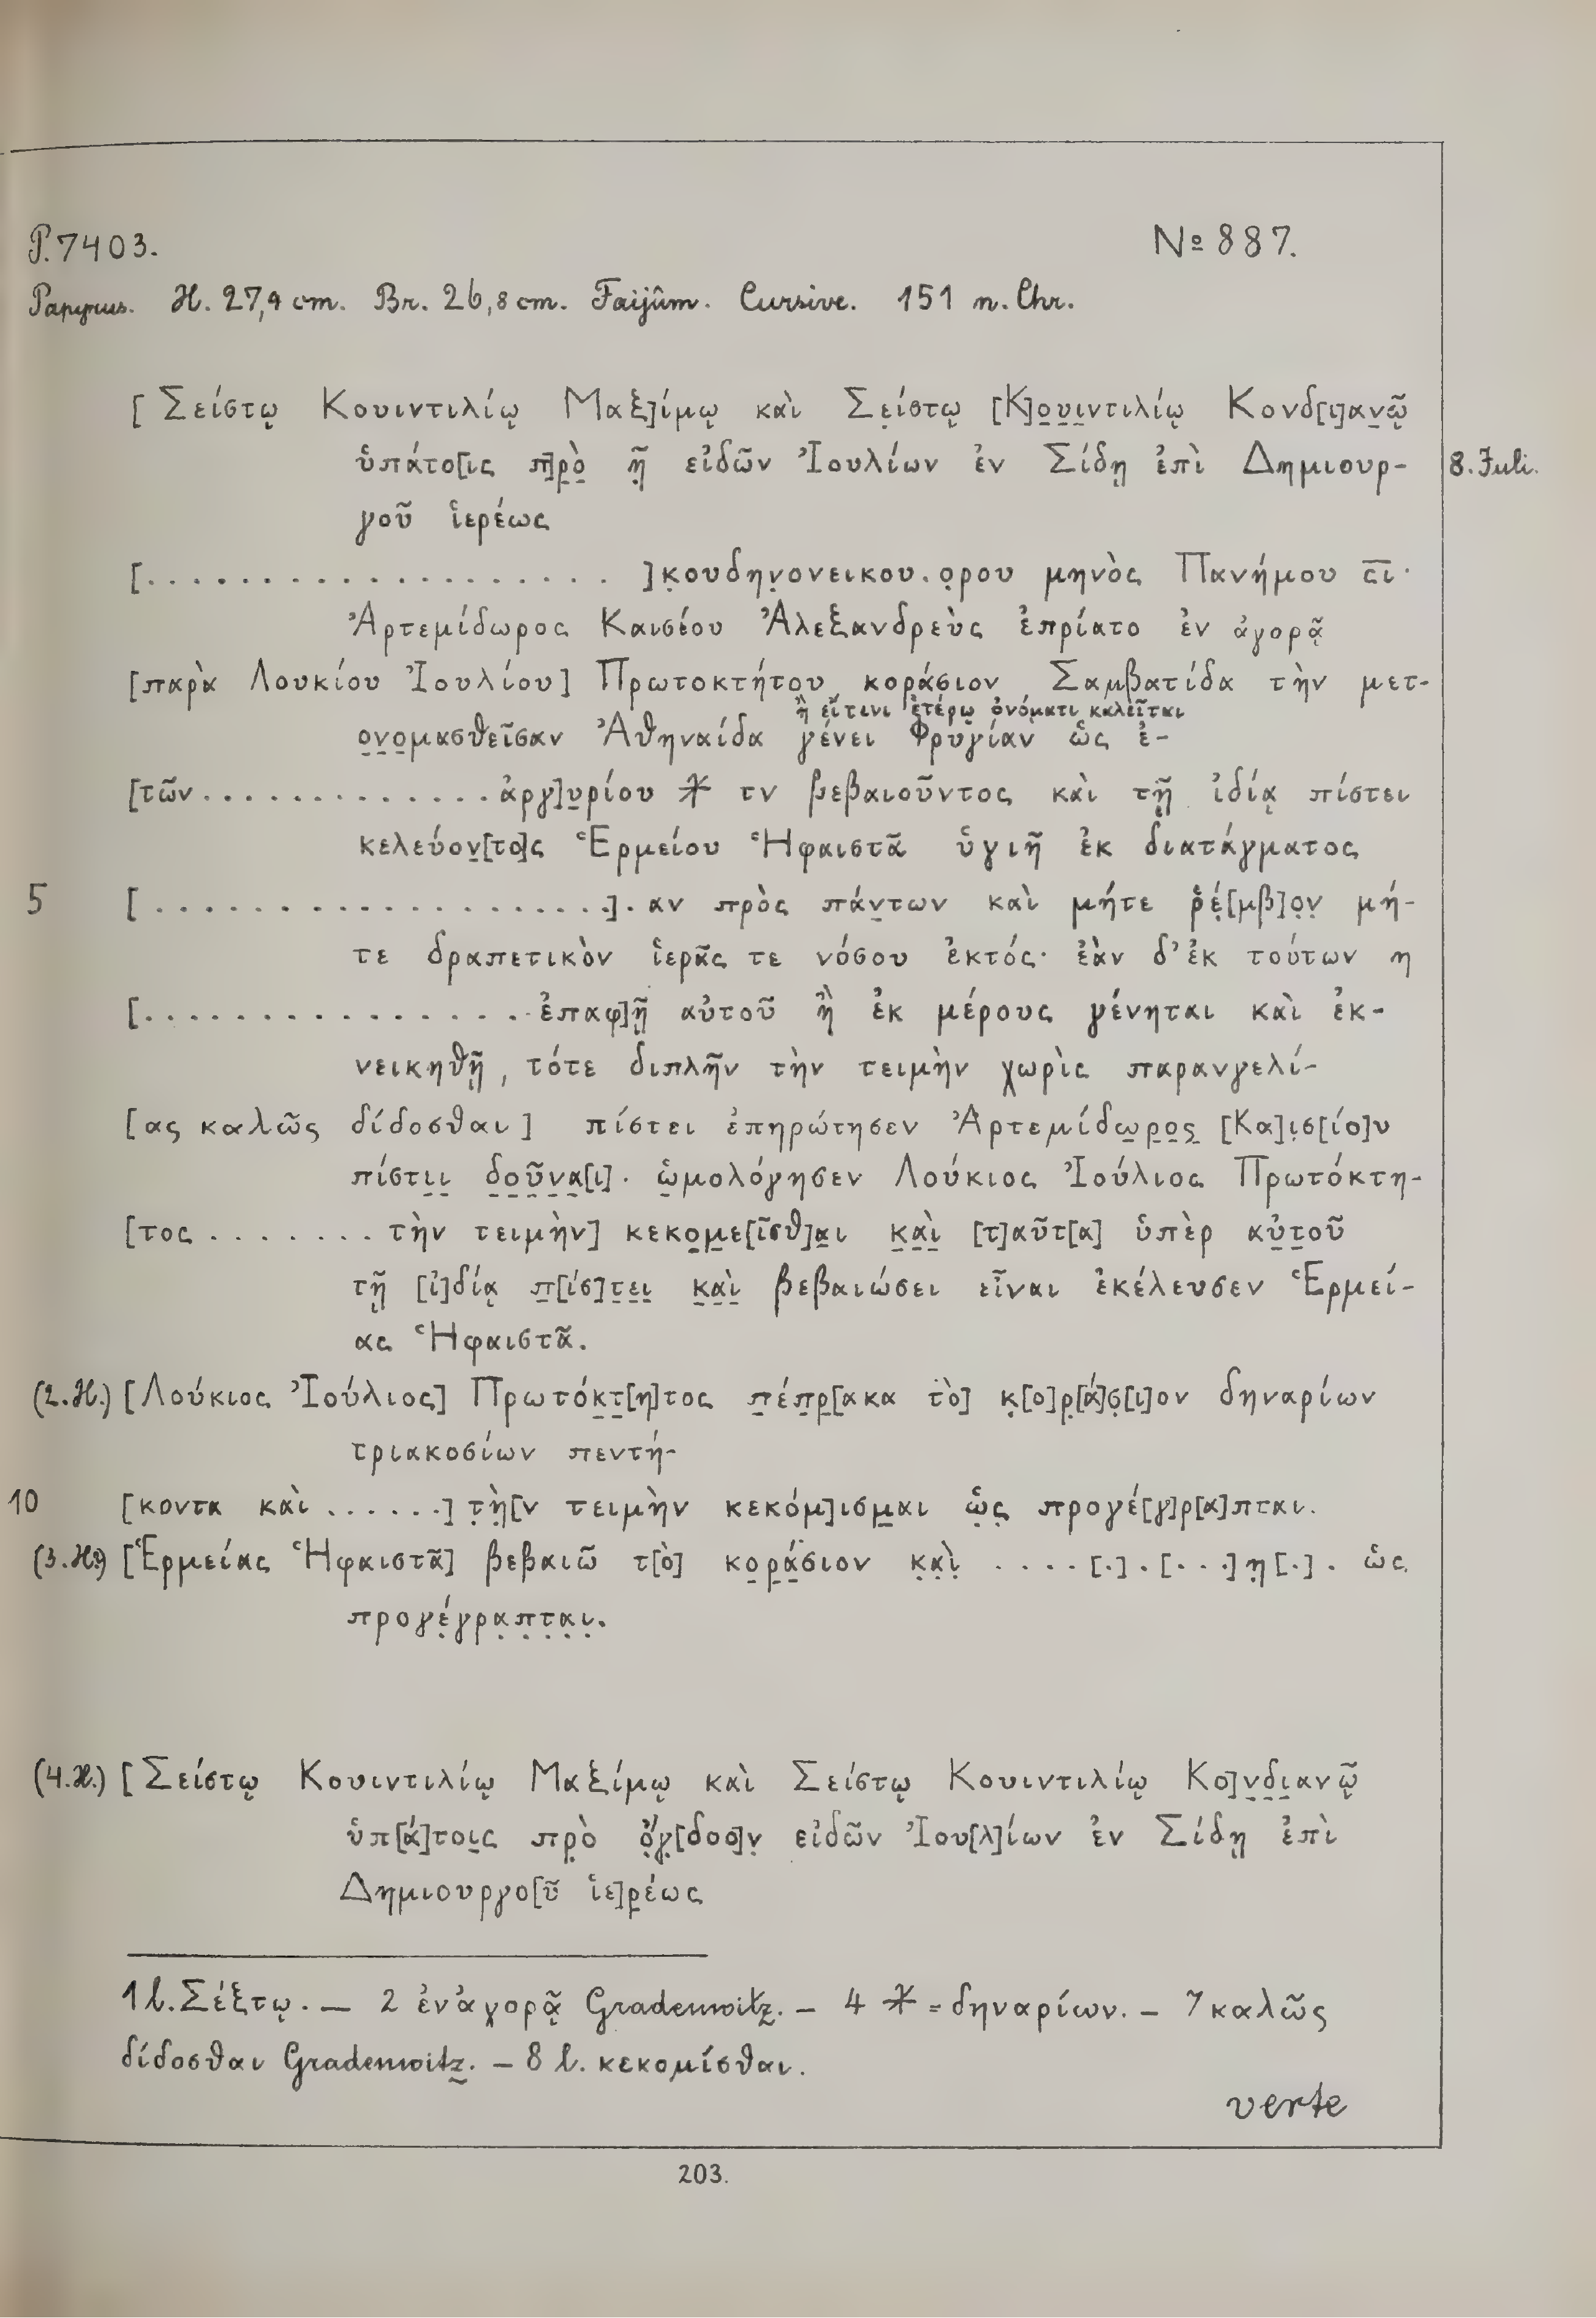 P. 7403.
№ 887.
Papyrus. H. 27,4 cm. Br. 26,8 cm. Faijûm. Cursive. 151 n. Chr.
[Σείστῳ Κουιντιλίῳ Μαξ]ίμῳ καὶ Σε̣ίστῳ [Κ]ο̣υ̣ι̣ντιλίῳ Κονδ[ι]αν̣ῷ
ὑπάτο[ις π]ρ̣ὸ̣ η̣̄ εἰδῶν Ἰουλίων ἐν Σίδῃ ἐπὶ Δημιουρ-
8. Juli.
γοῦ ἱερέως
[. . . . . . . . . . . . . . . . . . . . ]κ̣ουδην̣ονεικου.ο̣ρου μηνὸς Πανήμου ς̅ι̅·
Ἀρτεμίδωρος Καισίου Ἀλεξανδρεὺς ἐπρίατο ἐν ἀγορᾷ
[παρὰ Λουκίου Ἰουλίου] Πρωτοκτήτου κοράσιον Σαμβατίδα τὴν μετ-
ἢ εἴ τινι ἑτέρῳ ὀνόματι καλεῖται
ο̣ν̣ο̣μασθεῖσαν Ἀθηναίδα γένει Φρυγίαν ὡς ἐ-
[τῶν . . . . . . . . . . . . . ἀργ]υ̣ρίου ⚹ τν βεβαιοῦντος καὶ τῇ ἰδίᾳ πίστει
κελεύον̣[το]ς Ἑρμείου Ἡφαιστᾶ ὑγιῆ ἐκ διατάγματος
5 [. . . . . . . . . . . . . . . . . . . .]. αν πρὸς πάν̣των καὶ μήτε ῥ̣έ̣[μβ]ο̣ν̣ μή-
τε δραπετικὸν ἱερᾶς τε νόσου ἐκτός· ἐὰν δ’ ἐκ τούτων η
[. . . . . . . . . . . . . . . . ἐπαφ]ῇ αὐτοῦ ἢ ἐκ μέρους γένηται καὶ ἐκ-
νεικηθῇ, τότε διπλῆν τὴν τειμὴν χωρὶς παρανγελί-
[ας καλῶς δίδοσθαι] πίστει ἐπηρώτησεν Ἀρτεμίδω̣ρ̣ο̣ς̣ [Κα]ι̣σ[ίο]υ
πίστι̣ι̣ δ̣ο̣ῦ̣ν̣α̣[ι]· ὡ̣μολόγησεν Λούκιος Ἰούλιος Πρωτόκτη-
[τος . . . . . . . . τὴν τειμὴν] κεκο̣μ̣ε[ῖσθ]α̣ι κ̣α̣ὶ̣ [τ]αῦτ[α] ὑπὲρ αὐ̣τ̣οῦ
τῇ [ἰ]δίᾳ π̣[ίσ]τ̣ε̣ι̣ κ̣α̣ὶ̣ βεβαιώσει εἶναι ἐκέλευσεν Ἑρμεί-
ας Ἡφαιστᾶ.
(2. H.) [Λούκιος Ἰούλιος] Πρωτόκ̣τ̣[η]τος π̣έπ̣ρ̣[ακα τὸ] κ̣[ο]ρ̣[ά]σ̣[ι]ον δηναρίων
τριακοσίων πεντή-
10 [κοντα καὶ . . . . . .] τ̣ὴ̣[ν τειμὴν κεκόμ]ισμ̣αι ὡ̣ς̣ προγέ[γ]ρ[α]πται.
(3. H.) [Ἑρμείας Ἡφαιστᾶ] βεβαιῶ τ[ὸ] κο̣ρ̣ά̣σιον κ̣α̣ὶ̣ . . . . [.] . [. . .]η̣[.] . ὡς
προγέ̣γρα̣π̣τ̣α̣ι̣.
(4. H.) [Σείστῳ Κουιντιλίῳ Μαξίμῳ καὶ Σείστῳ Κουιντιλίῳ Κο]ν̣δ̣ι̣ανῷ
ὑπ[ά]τοι̣ς πρ̣ὸ ὄ̣γ̣[δοο]ν̣ εἰδῶν Ἰου[λ]ίων ἐν Σίδῃ ἐπὶ
Δημιουργο[ῦ ἱε]ρ̣έως
1 l. Σέξτῳ. — 2 ἐν ἀγορᾷ Gradenwitz. — 4 ⚹ = δηναρίων. — 7 καλῶς
δίδοσθαι Gradenwitz. — 8 l. κεκομίσθαι.
verte
203.